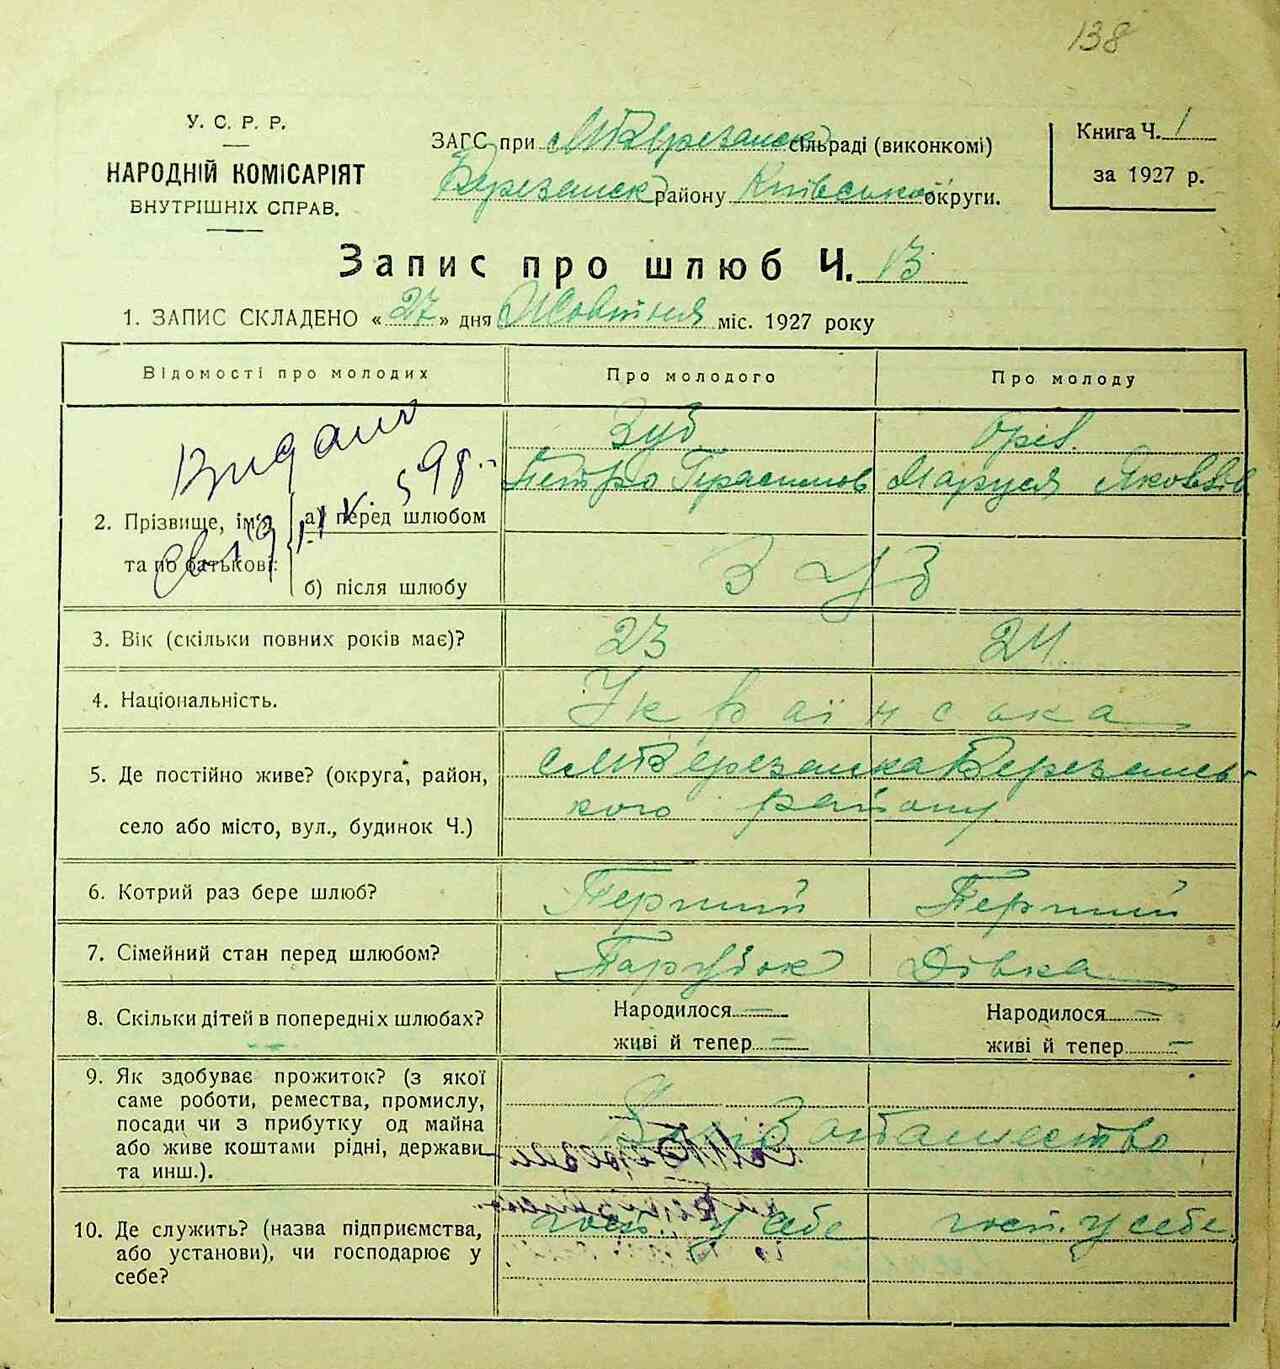 138
У. С. Р. Р.
НАРОДНІЙ КОМІСАРІЯТ
ВНУТРІШНІХ СПРАВ.
ЗАГС при М Березанск сільраді (виконкомі)
Березанск району Київської округи.
Книга Ч. 1
за 1927 р.
Запис про шлюб Ч. 13
1. ЗАПИС СКЛАДЕНО «27» дня Жовтня міс. 1927 року
Відомості про молодих
Про молодого
Про молоду
Видано
2. Прізвище, ім'я та по батькові:
а) перед шлюбом
б) після шлюбу
Зуб
Петро Герасимов
Маруся Яковлів
Зуб
3. Вік (скільки повних років має)?
23
24
4. Національність.
Українська
5. Де постійно живе? (округа, район,
село або місто, вул., будинок Ч.)
М Березанка Березансь-
кого району
6. Котрий раз бере шлюб?
Перший
Перший
7. Сімейний стан перед шлюбом?
Парубок
Дівка
8. Скільки дітей в попередніх шлюбах?
Народилося —
живі й тепер —
Народилося —
живі й тепер —
9. Як здобуває прожиток? (з якої
саме роботи, ремества, промислу,
посади чи з прибутку од майна
або живе коштами рідні, держави
та инш.).
10. Де служить? (назва підприємства,
або установи), чи господарює у
себе?
госп. у себе
госп. у себе